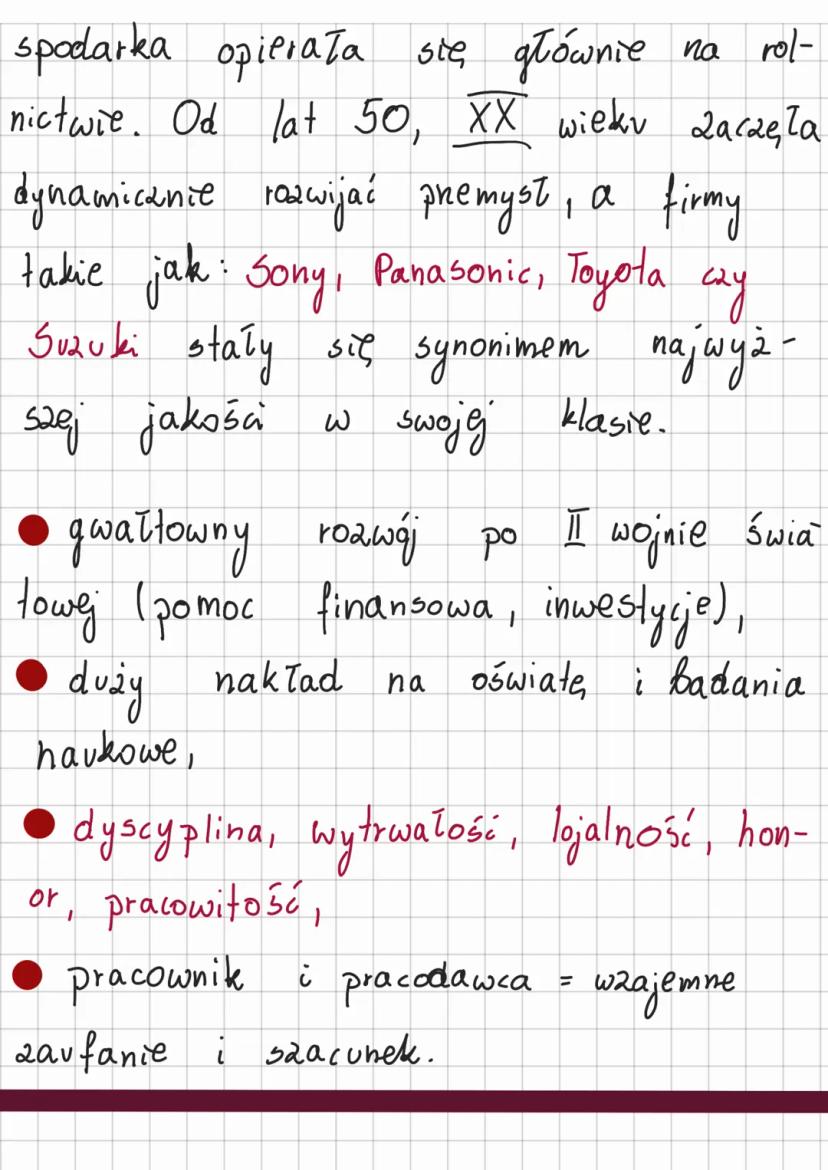 spodarka opierała się głównie na rol-
nictwie. Od lat 50, XX wieku zaczęła
dynamicznie rozwijać przemysł, a firmy
takie jak: Sony, Panasonic, Toyota czy
Suzuki stały się synonimem najwyż-
szej jakości w swojej klasie.
● gwałtowny rozwój po II wojnie świa-
towej (pomoc finansowa, inwestycje),
● duży nakład na oświatę i badania
naukowe,
● dyscyplina, wytrwałość, lojalność, hon-
or, pracowitość,
● pracownik i pracodawca = wzajemne
zaufanie i szacunek.